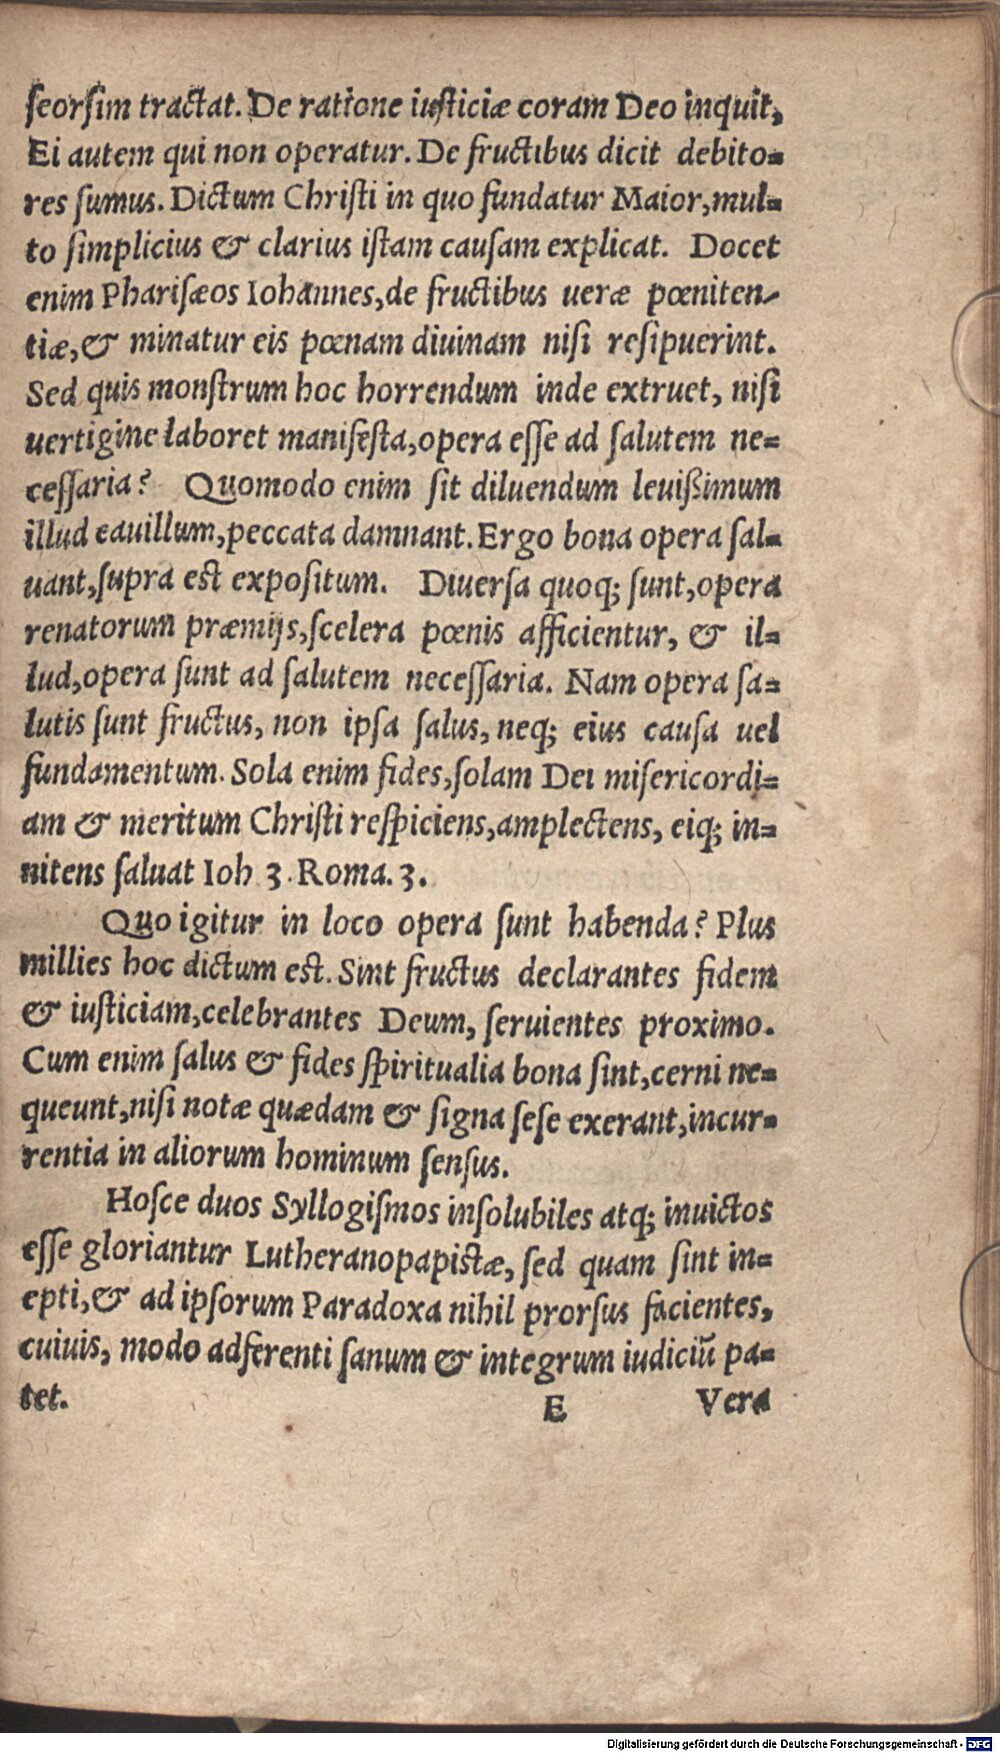 ſeorſim tractat. De ratione iuſticiæ coram Deo inquit,
Ei autem qui non operatur. De fructibus dicit debito=
res ſumus. Dictum Chriſti in quo fundatur Maior, mul=
to ſimplicius & clarius iſtam cauſam explicat. Docet
enim Phariſæos Iohannes, de fructibus ueræ pœniten-
tiæ, & minatur eis pœnam diuinam niſi reſipuerint.
Sed quis monſtrum hoc horrendum inde extruet, niſi
uertigine laboret manifeſta, opera eſſe ad ſalutem ne=
ceſſaria? Quomodo enim ſit diluendum leuißimum
illud cauillum, peccata damnant. Ergo bona opera ſal=
uant, ſupra est expoſitum. Diuerſa quoq; ſunt, opera
renatorum præmijs, ſcelera pœnis afficientur, & il=
lud, opera ſunt ad ſalutem neceſſaria. Nam opera ſa=
lutis ſunt fructus, non ipſa ſalus, neq; eius cauſa uel
fundamentum. Sola enim fides, ſolam Dei miſericordi=
am & meritum Chriſti reſpiciens, amplectens, eiq; in=
nitens ſaluat Ioh 3. Roma. 3.
Quo igitur in loco opera ſunt habenda? Plus
millies hoc dictum est. Sint fructus declarantes fidem
& iuſticiam, celebrantes Deum, ſeruientes proximo.
Cum enim ſalus & fides ſpiritualia bona ſint, cerni ne=
queunt, niſi notæ quædam & ſigna ſeſe exerant, incur=
rentia in aliorum hominum ſenſus.
Hoſce duos Syllogiſmos inſolubiles atq; inuictos
eſſe gloriantur Lutheranopapistæ, ſed quam ſint in=
epti, & ad ipſorum Paradoxa nihil prorſus facientes,
cuiuis, modo adferenti ſanum & integrum iudiciũ pa=
tet.
E Vera
Digitalisierung gefördert durch die Deutsche Forschungsgemeinschaft - DFG